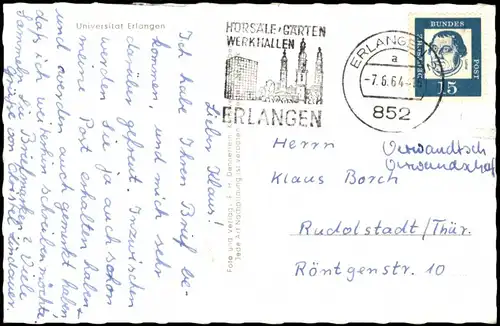 Universität Erlangen
Lieber Klaus!
Ich habe Ihren Brief be-
kommen, und mich sehr
darüber gefreut. Inzwischen
werden Sie ja auch schon
meine Post erhalten haben
und werden auch gemerkt haben
daß ich weiterhin schreiben möchte.
Sammeln Sie Briefmarken? Viele
Grüße von
HÖRSÄLE · GÄRTEN
WERKHALLEN
ERLANGEN
ERLANGEN
a
-7.8.64
852
DEUTSCHE
BUNDES
POST
15
Herrn
Klaus Borch
Verwandtsch
Rudolstadt/Thür.
Röntgenstr. 10